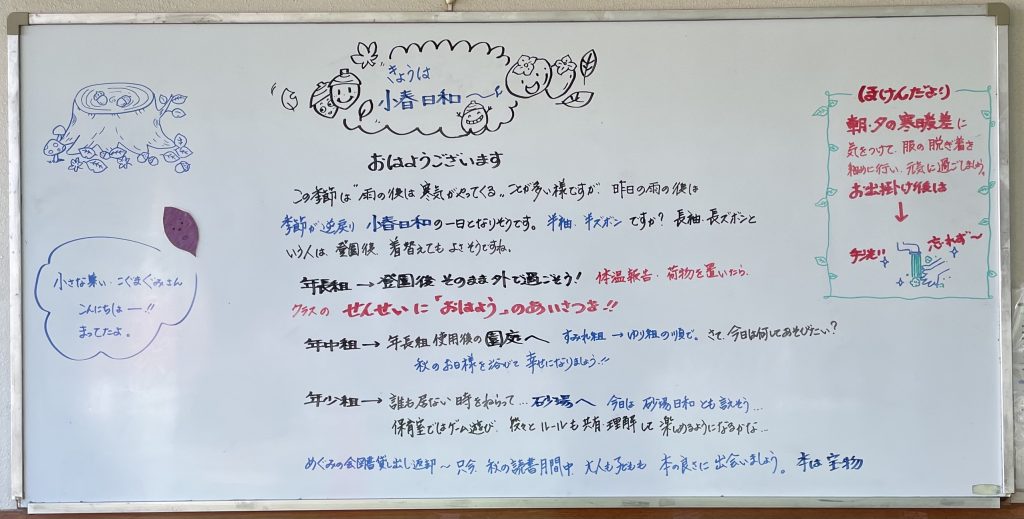 きょうは
小春日和～
おはようございます
この季節は"雨の後は寒気がやってくる"ことが多い様ですが 昨日の雨の後は
季節が逆戻り 小春日和の一日となりそうです。半袖、半ズボンですか？長袖・長ズボンと
いう人は、登園後、着替えてもよさそうですね。
年長組→登園後そのまま外で過ごそう！ 体温報告・荷物を置いたら、
クラスの せんせいに「おはよう」のあいさつを!!
年中組→年長組使用後の園庭へ すみれ組→ゆり組の順で。さて、今日は何してあそびたい？
秋のお日様を浴びて 幸せになりましょう!!
年少組→誰も居ない時をねらって…砂場へ 今日は 砂場日和とも言えそう…
保育室ではゲーム遊び、段々とルールも共有・理解して楽しめるようになるかな…
めぐみの会図書貸し出し返却～只今、秋の読書月間中、大人も子どもも 本の良さに出会いましょう。本は宝物
小さな集い・こぐまぐみさん
こんにちはー!!
まってたよ。
ほけんだより
朝・夕の寒暖差に
気をつけて、服の脱ぎ着を
細めに行い、元気に過ごしましょう。
お出掛け後は
↓
手洗い
忘れず～